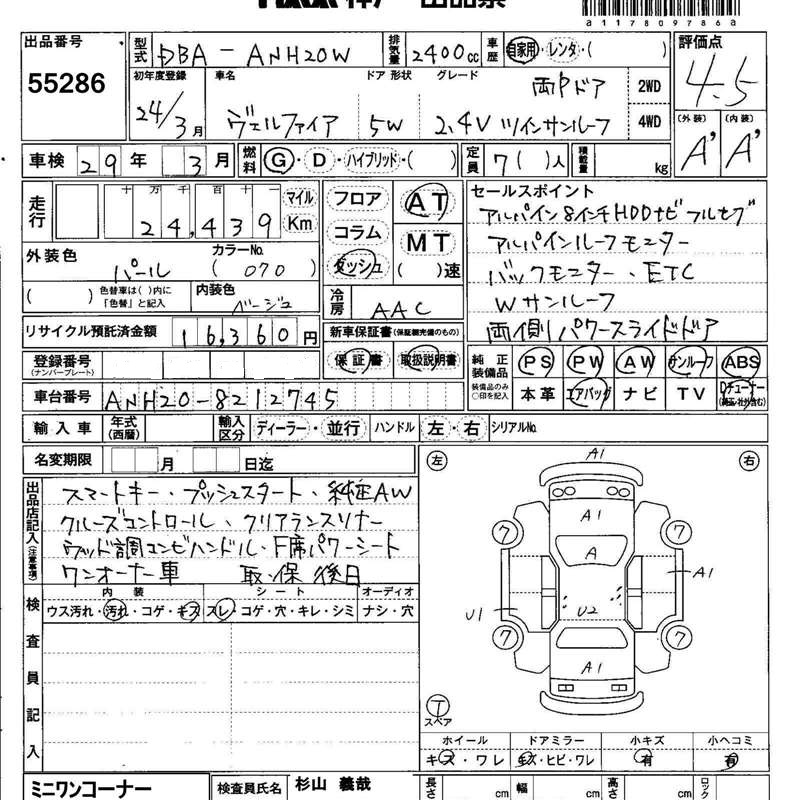 a117809786a
出品番号 型式 DBA - ANH20W 排気量 2400cc 車歴 自家用・レンタ・( ) 評価点
55286 4.5
初年度登録 車名 ドア 形状 グレード 両Pドア 2WD
24/3月 ヴェルファイア 5W 2.4V ツインサンルーフ 4WD
(外装) (内装)
A' A'
車検 29年 3月 燃料 G・D・ハイブリッド・( ) 定員 7( )人 積載量 kg
走行 十万千百十 マイル
24,439 Km
フロア AT
コラム MT
ダッシュ ( )速
セールスポイント
アルパイン8インチHDDナビ フルセグ
アルパインルーフモニター
バックモニター、ETC
Wサンルーフ
両側パワースライドドア
外装色 カラーNo.
パール ( 070 )
( ) 色替車は( )内に『色替』と記入 内装色 ベージュ
冷房 AAC
リサイクル預託済金額 16,360円
新車保証書(保証継完備のもの)
保証書 取扱説明書
登録番号
(ナンバープレート)
純正装備品 PS PW AW サンルーフ ABS
装備品のみ○印を記入 本革 エアバッグ ナビ TV Dチューナー
車台番号 ANH20-8212745
輸入車 年式(西暦) 輸入区分 ディーラー・並行 ハンドル 左・右 シリアルNo.
名変期限 月 日迄
左 右
出品店記入(注意事項)
スマートキー・プッシュスタート・純正AW
クルーズコントロール、クリアランスソナー
ウッド調コンビハンドル・F席パワーシート
ワンオーナー車 取・保 後日
検査員記入
内装 シート オーディオ
ウス汚れ・汚れ・コゲ・キズ スレ・コゲ・穴・キレ・シミ ナシ・穴
A1
A1
7 7
A
A1
U1 U2
7 7
A1
T
スペア
ホイール ドアミラー 小キズ 小ヘコミ
キズ・ワレ キズ・ヒビ・ワレ 有 有
ミニワンコーナー 検査員氏名 杉山 義哉 長さ cm 幅 cm 高さ cm ロック